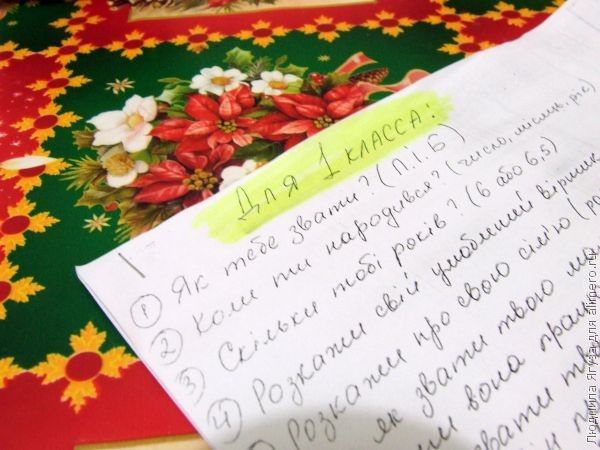 Для 1 класса:
1 Як тебе звати? (П.І.Б)
2 Коли ти народився? (число, місяць, рік)
3 Скільки тобі років? (6 або 6,5)
4 Розкажи свій улюблений віршик
Розкажи про свою сім'ю
як звати твою
вона
звати
Людмила Ягуза для alkpero.ru